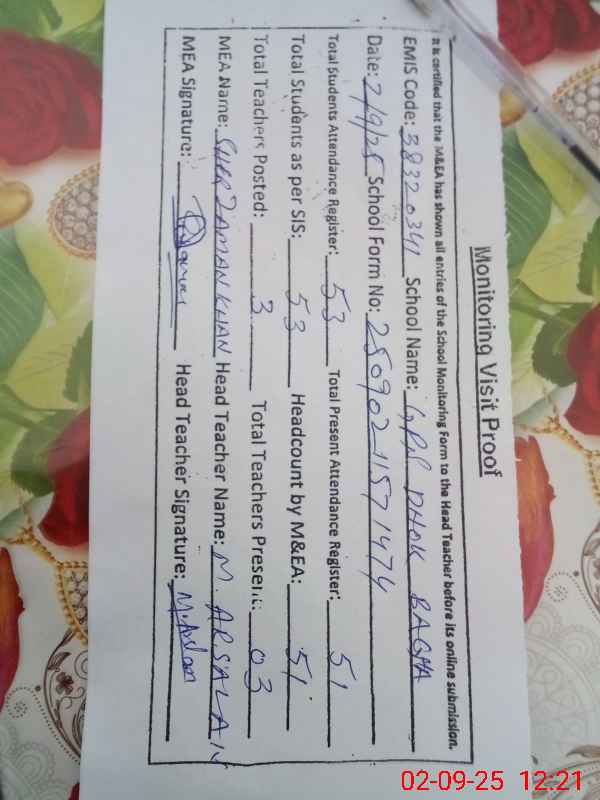 Monitoring Visit Proof
It is certified that the M&EA has shown all entries of the School Monitoring Form to the Head Teacher before its online submission.
EMIS Code: 38320341 School Name: GPS DHOK BAGHA
Date: 2/9/25 School Form No: 25090211571474
Total Students Attendance Register: 53 Total Present Attendance Register: 51
Total Students as per SIS: 53 Headcount by M&EA: 51
Total Teachers Posted: 3 Total Teachers Present: 03
MEA Name: SHER ZAMAN KHAN Head Teacher Name: M. ARSALAN
MEA Signature: Head Teacher Signature: M.Arslan
02-09-25 12:21